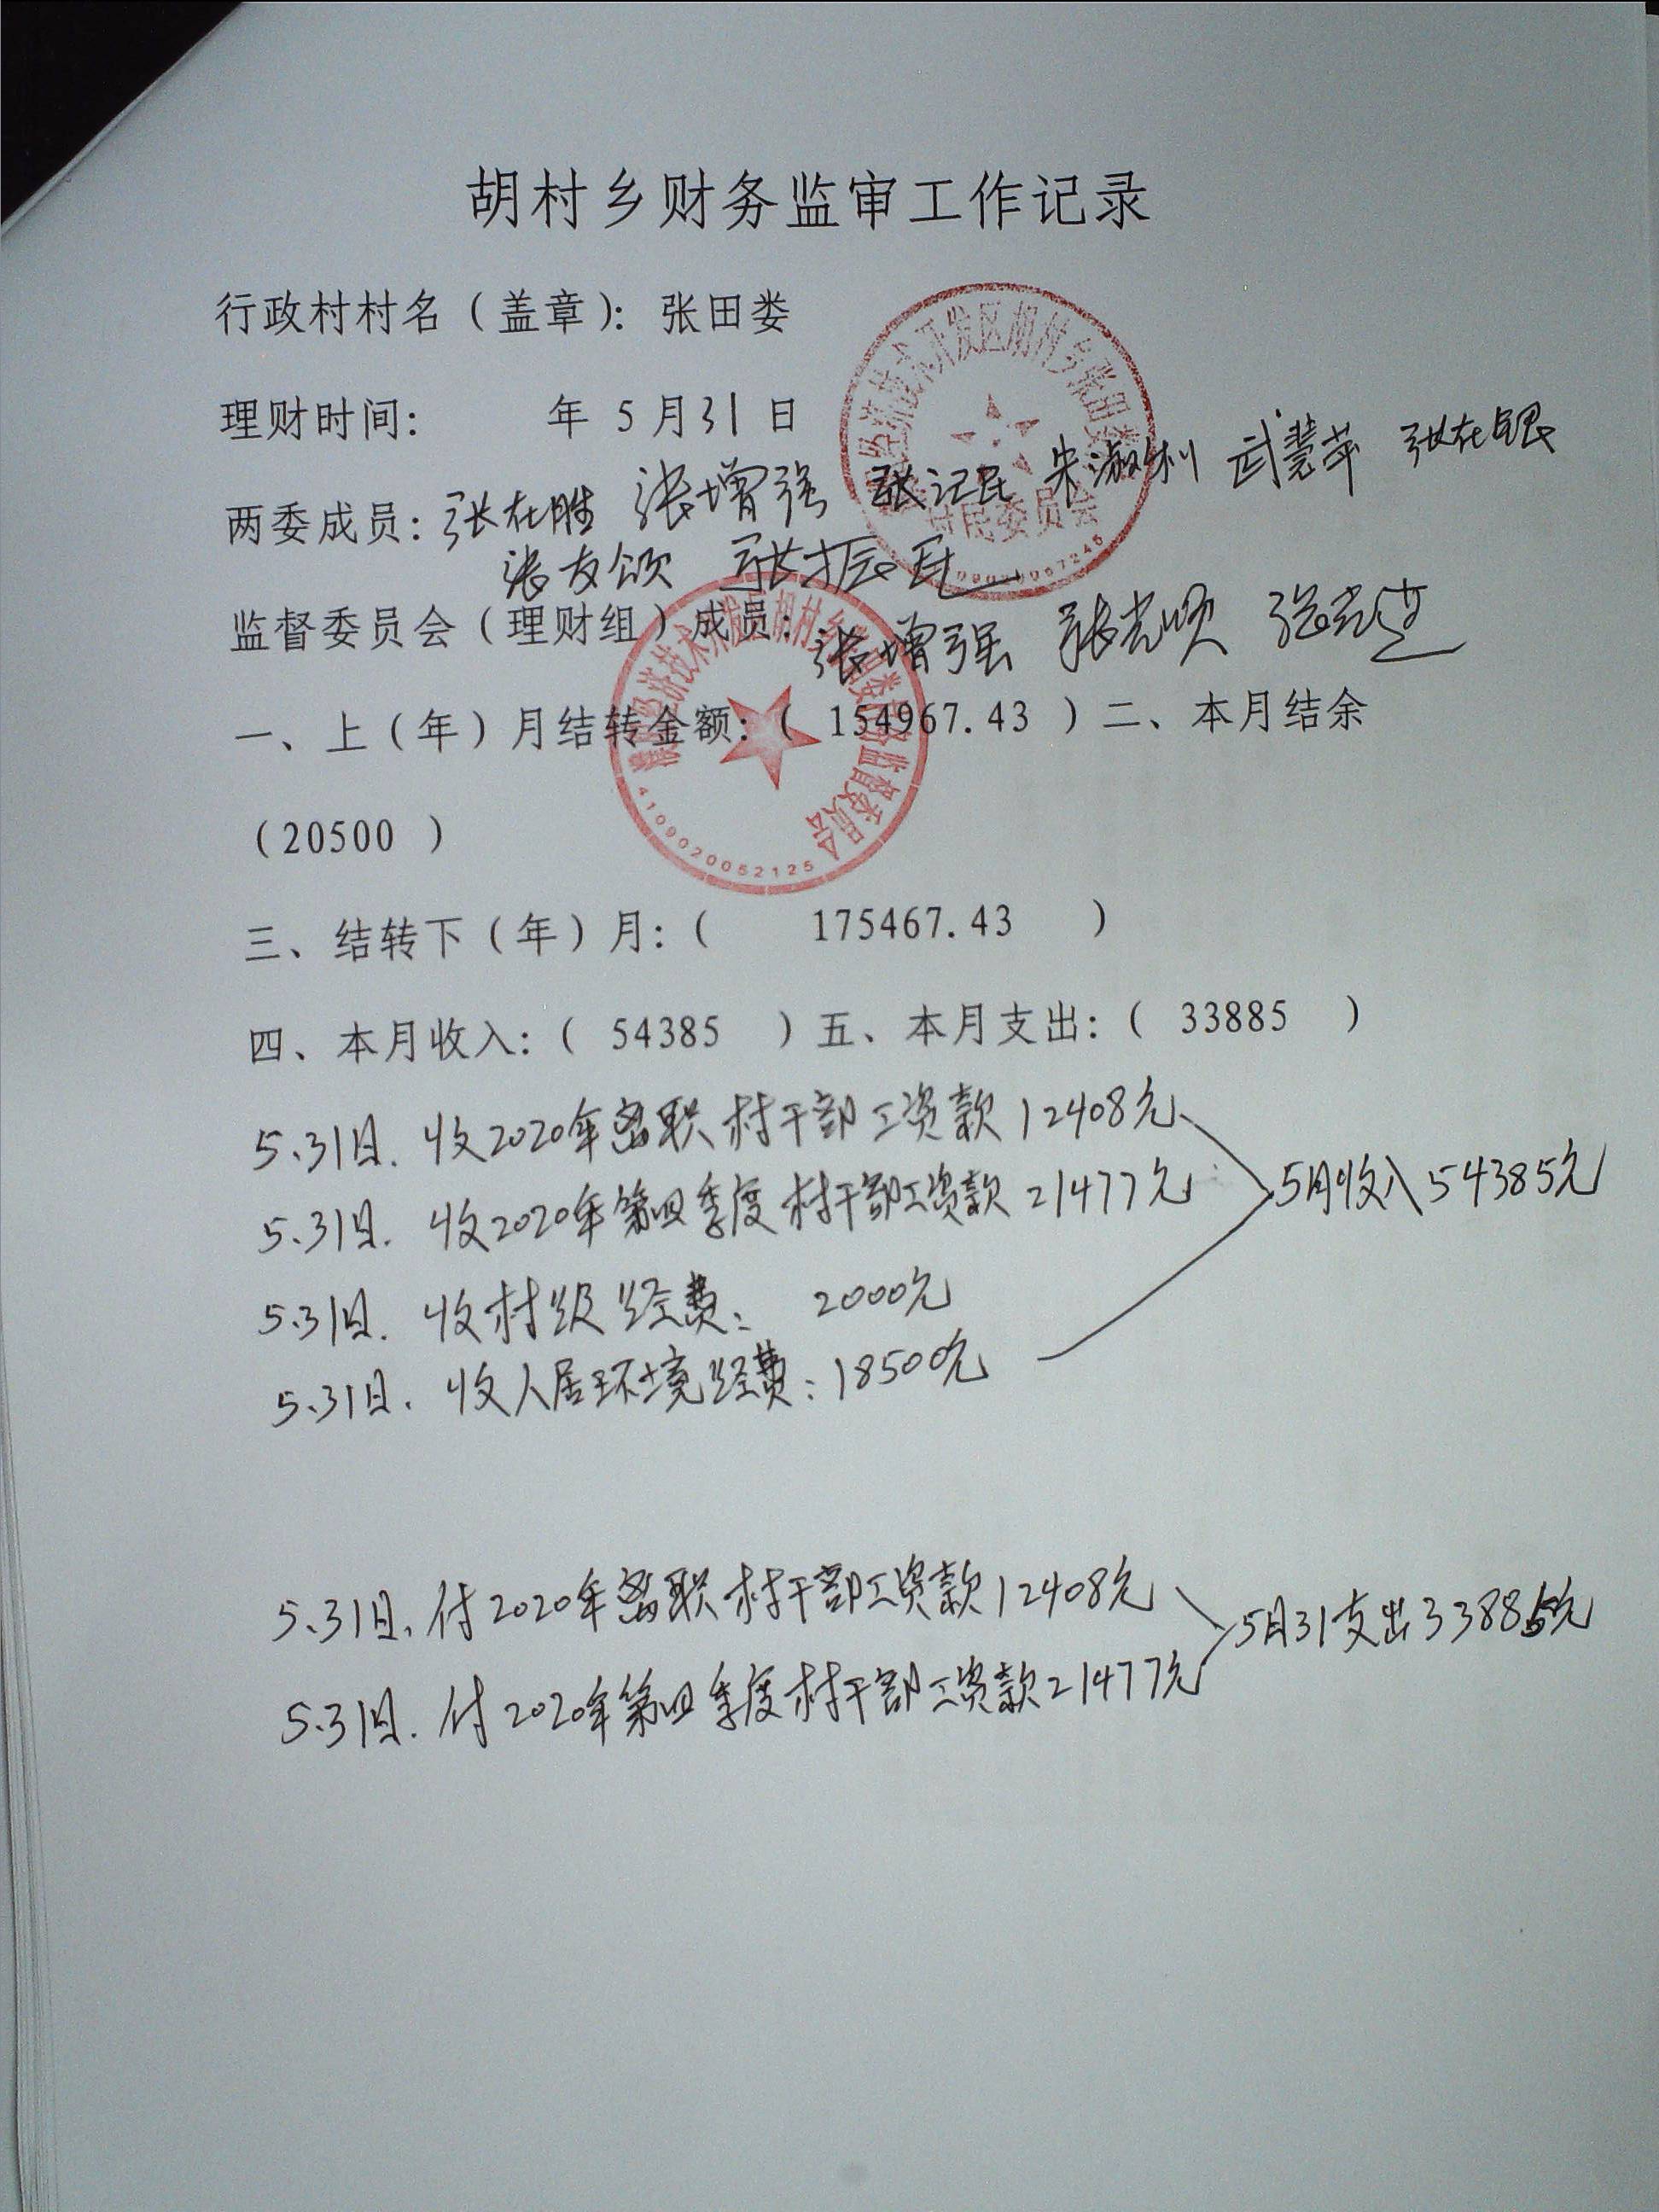 胡村乡财务监审工作记录
行政村村名（盖章）：张田娄
理财时间： 年 5 月31 日
两委成员：张在胜 张增强 张记民 朱淑利 武慧苹 张在银
张友领 张振民
监督委员会（理财组）成员：张增强 张光顺
一、上（年）月结转金额：（ 154967.43 ）二、本月结余
（20500 ）
三、结转下（年）月：（ 175467.43 ）
四、本月收入：（ 54385 ）五、本月支出：（ 33885 ）
5.31日. 收2020年离职村干部工资款12408元
5.31日. 收2020年第四季度村干部工资款21477元
5月收入54385元
5.31日. 收村级经费： 2000元
5.31日. 收人居环境经费：18500元
5.31日. 付2020年离职村干部工资款12408元
5月31支出33885元
5.31日. 付2020年第四季度村干部工资款21477元
村民委员会
4109020052125